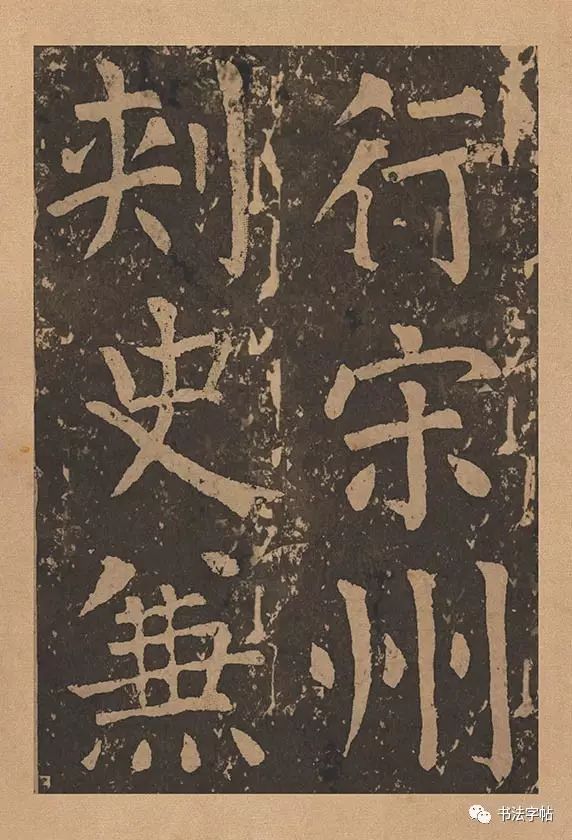 行宋州
刾史無
书法字帖